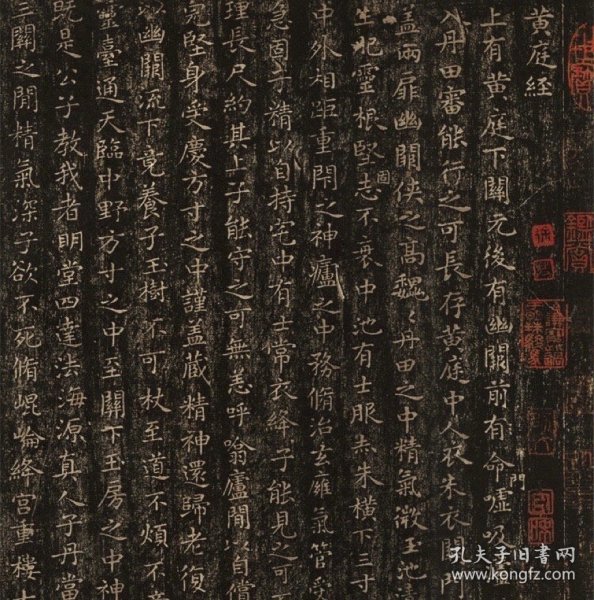 黄庭经
上有黄庭下關元後有幽闕前有命門嘘吸廬
入丹田審能行之可長存黄庭中人衣朱衣關門
盖兩扉幽闕俠之高魏〻丹田之中精氣微玉池清
生肥靈根堅固志不衰中池有士服赤朱横下三寸
中外相距重閉之神廬之中務脩治玄廱氣管受
急固子精以自持宅中有士常衣絳子能見之可
理長尺約其上子能守之可無恙呼噏廬間以自償
完堅身受慶方寸之中謹盖藏精神還歸老復
以幽闕流下竟養子玉樹不可杖至道不煩不
靈臺通天臨中野方寸之中至關下玉房之中神
既是公子教我者明堂四達法海源真人子丹當
三關之間精氣深子欲不死脩崐崘絳宫重樓十
孔夫子旧书网
www.kongfz.com